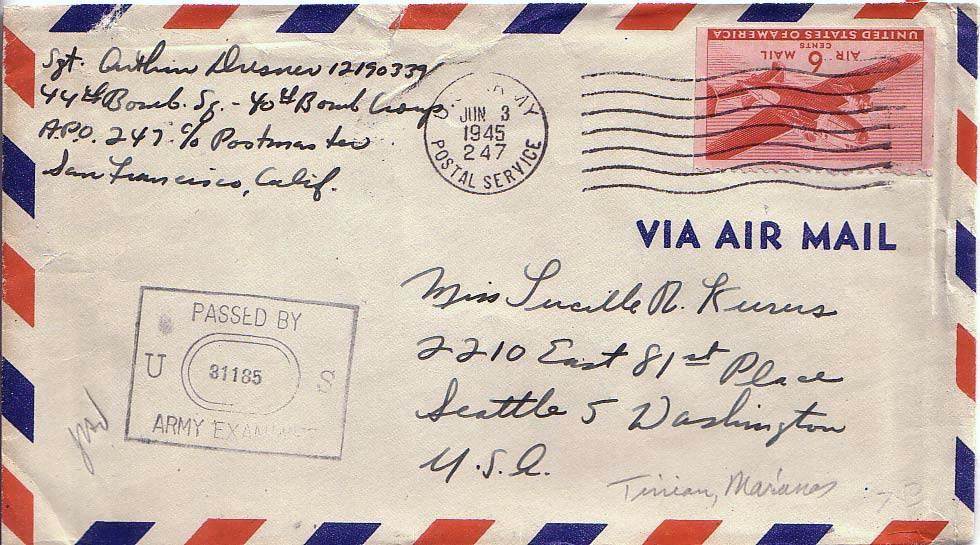 Sgt. Arthur Dresner 12190339
44th Bomb. Sq. - 40th Bomb Group
A.P.O. 247 c/o Postmaster
San Francisco, Calif.
ARMY
JUN 3
1945
247
POSTAL SERVICE
UNITED STATES OF AMERICA
6 CENTS
AIR MAIL
VIA AIR MAIL
Miss Lucille R.
2210 East 81st Place
Seattle 5 Washington
U.S.A.
PASSED BY
U 31185 S
ARMY EXAMINER
Tinian, Marianas